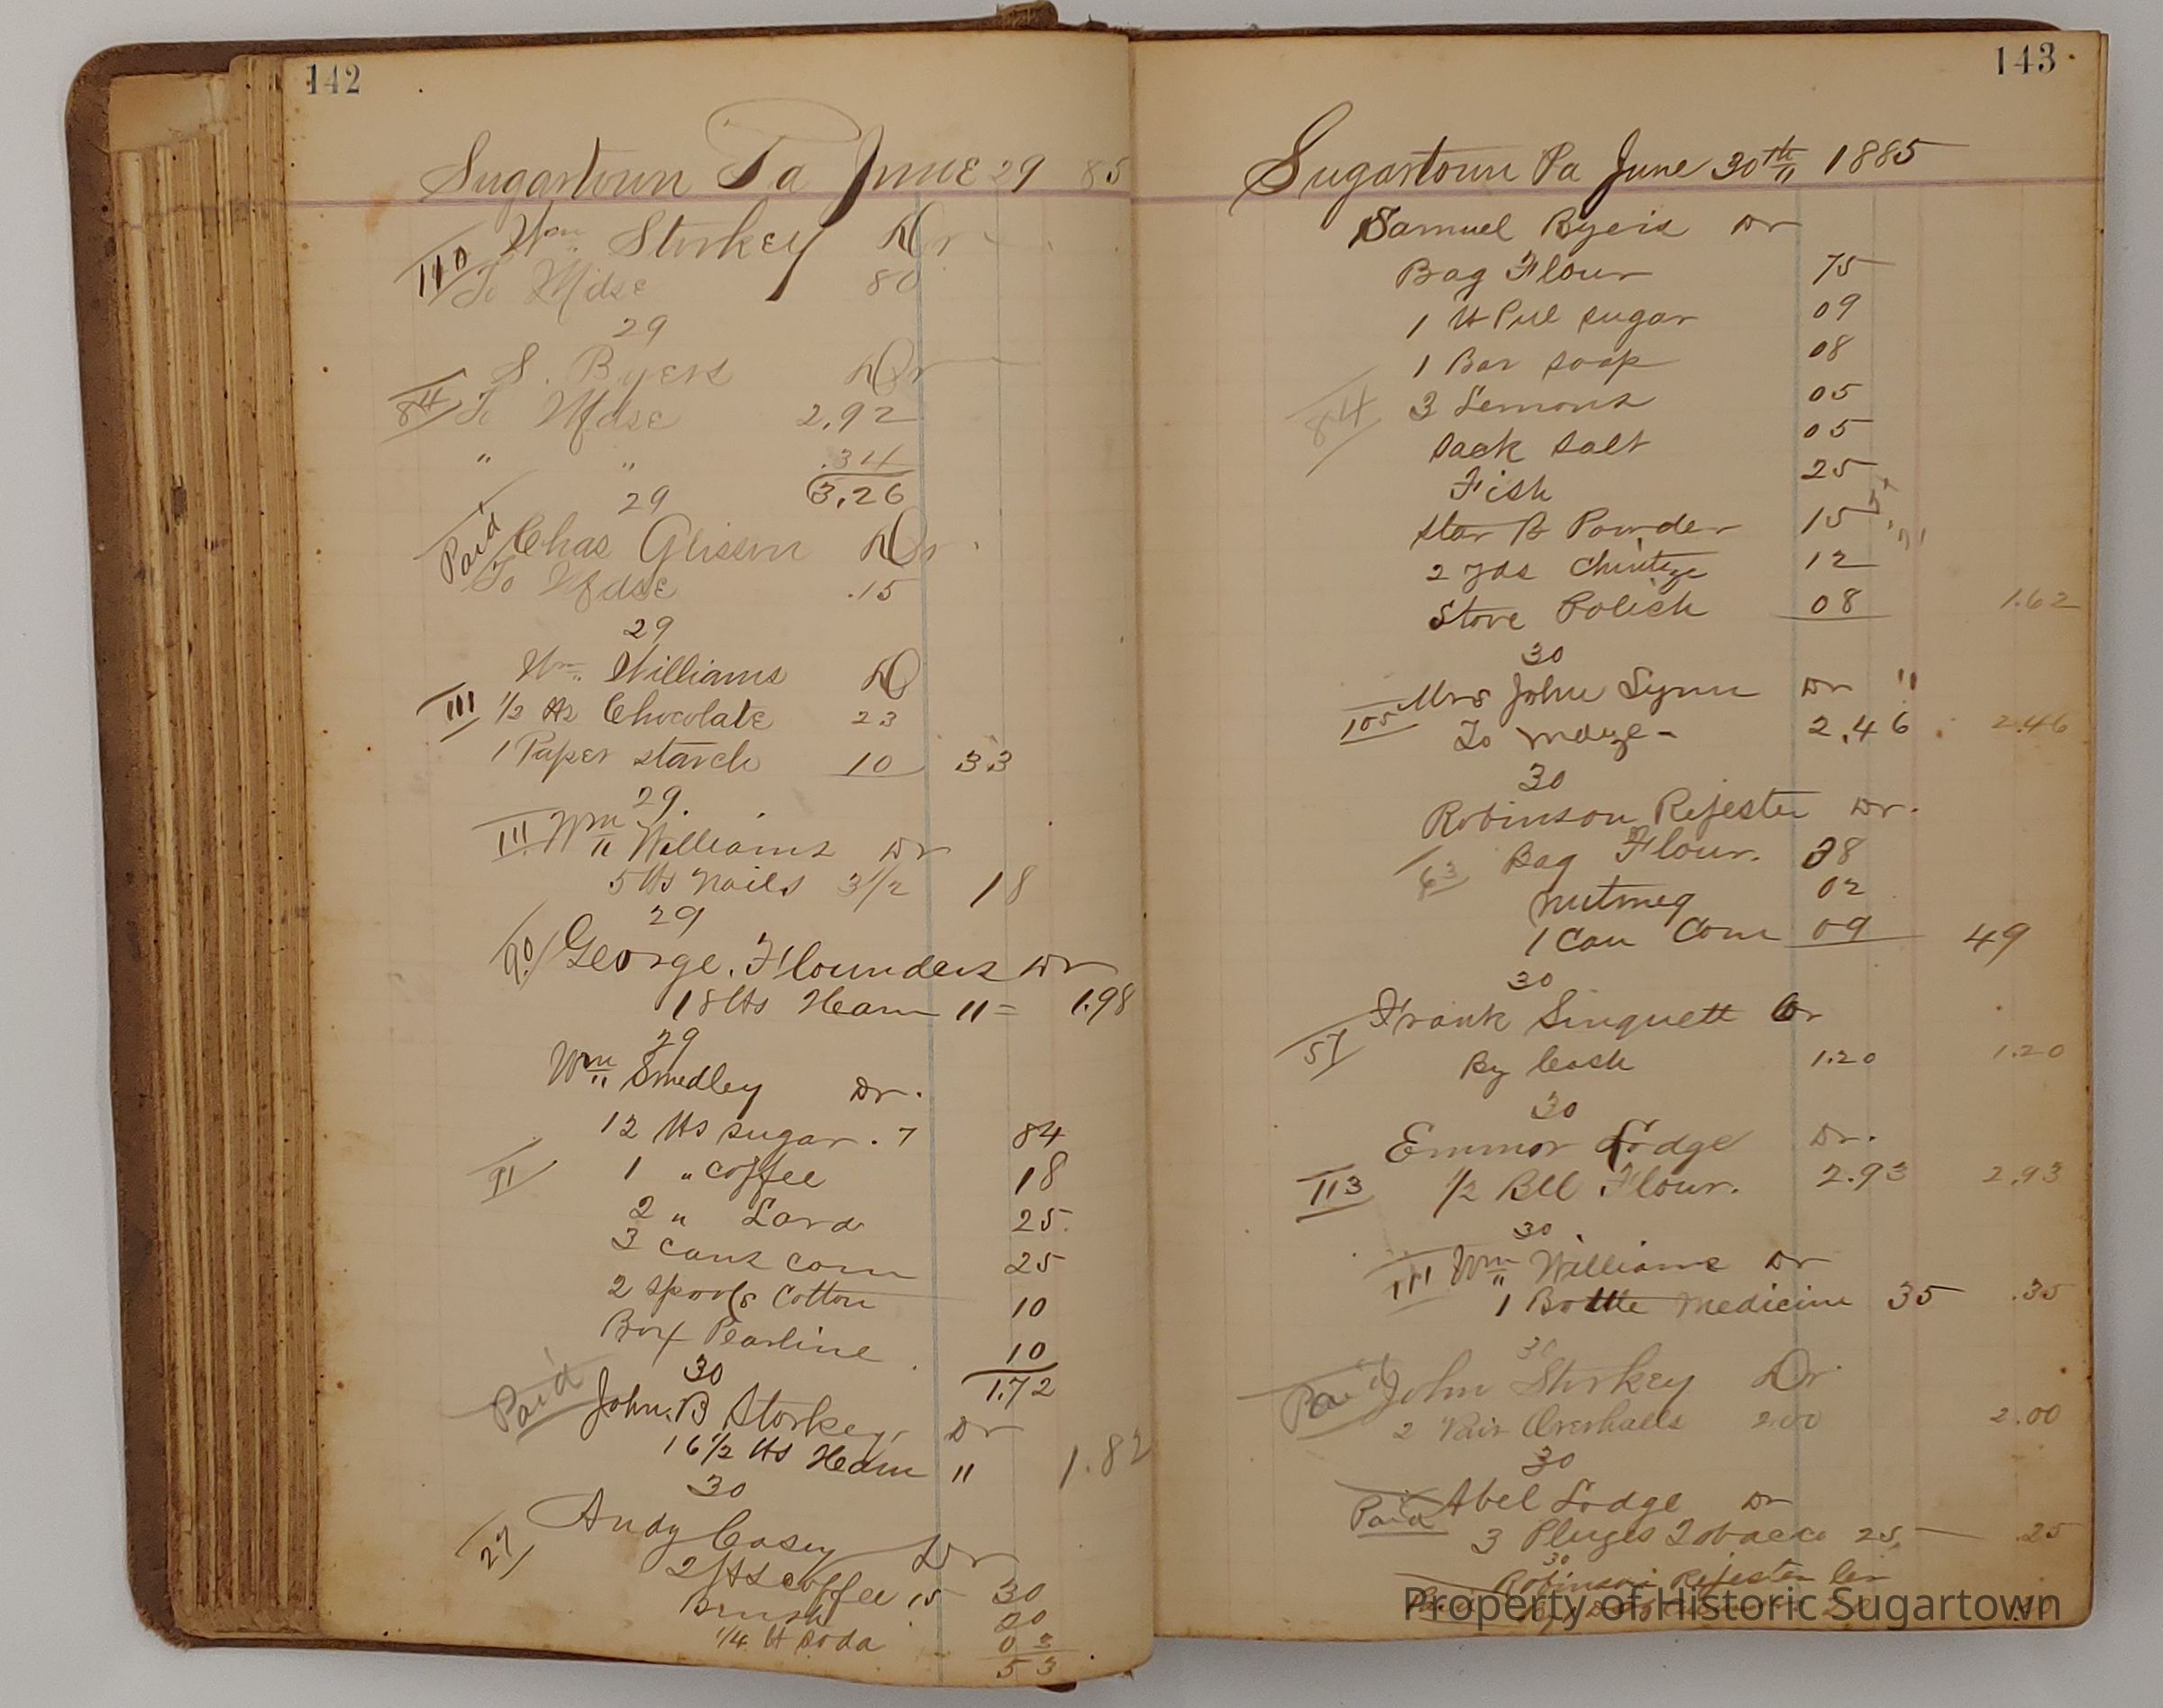 142
Sugartown Pa June 29 85
Wm. Storkey Dr
110 To Mdse 80
29
S. Byers Dr
84 To Mdse 2,92
" " .34
3,26
29
Paid Chas Glisson Dr
To Mdse .15
29
Wm. Williams D
111 1/2 lb Chocolate 23
1 Paper starch 10 33
29.
111 Wm Williams Dr
5 lbs nails 3 1/2 18
29
90 George. Flounders Dr
18 lbs Ham 11 = 1.98
29
Wm Smedley Dr.
12 lbs sugar. 7 84
91 1 " coffee 18
2 " Lard 25
3 cans corn 25
2 spools Cotton 10
Box Pearline 10
1.72
30
Paid John. B Storkey Dr
16 1/2 lbs Ham 11 1.82
30
27 Andy Casey Dr
2 lbs coffee 15 30
Brush 20
1/4 lb soda 03
53
143
Sugartown Pa June 30th 1885
Samuel Byers Dr
Bag Flour 75
1 lb Pul sugar 09
1 Bar soap 08
84 3 Lemons 05
sack salt 05
Fish 25
Star B Powder 15
2 yds Chintze 12
Stove Polish 08 1.62
30
Mrs John Lynn Dr
105 To mdze - 2.46 2.46
30
Robinson Rejester Dr.
63 Bag Flour. 38
nutmeg 02
1 Can Corn 09 49
30
Frank Sinquett Cr
57 By Cash 1.20 1.20
30
Emmor Lodge Dr.
113 1/2 Bll Flour. 2.93 2.93
30
111 Wm Williams Dr
1 Bottle medicine 35 .35
30
Paid John Storkey Dr
2 Pair Overhalls 2.00 2.00
30
Paid Abel Lodge Dr
3 Pluges Tobacco 25 .25
30
Robinson Rejester
Property of Historic Sugartown